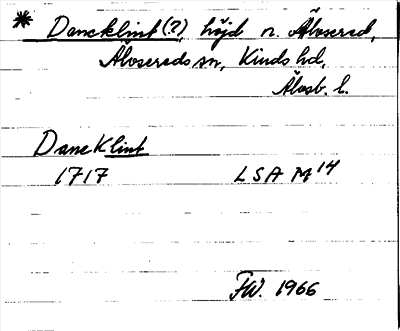 * Daneklint (?), höjd n. Älvsered,
Älvsereds sn, Kinds hd,
Älvsb. l.
Daneklint
1717 LSA M14
FW. 1966